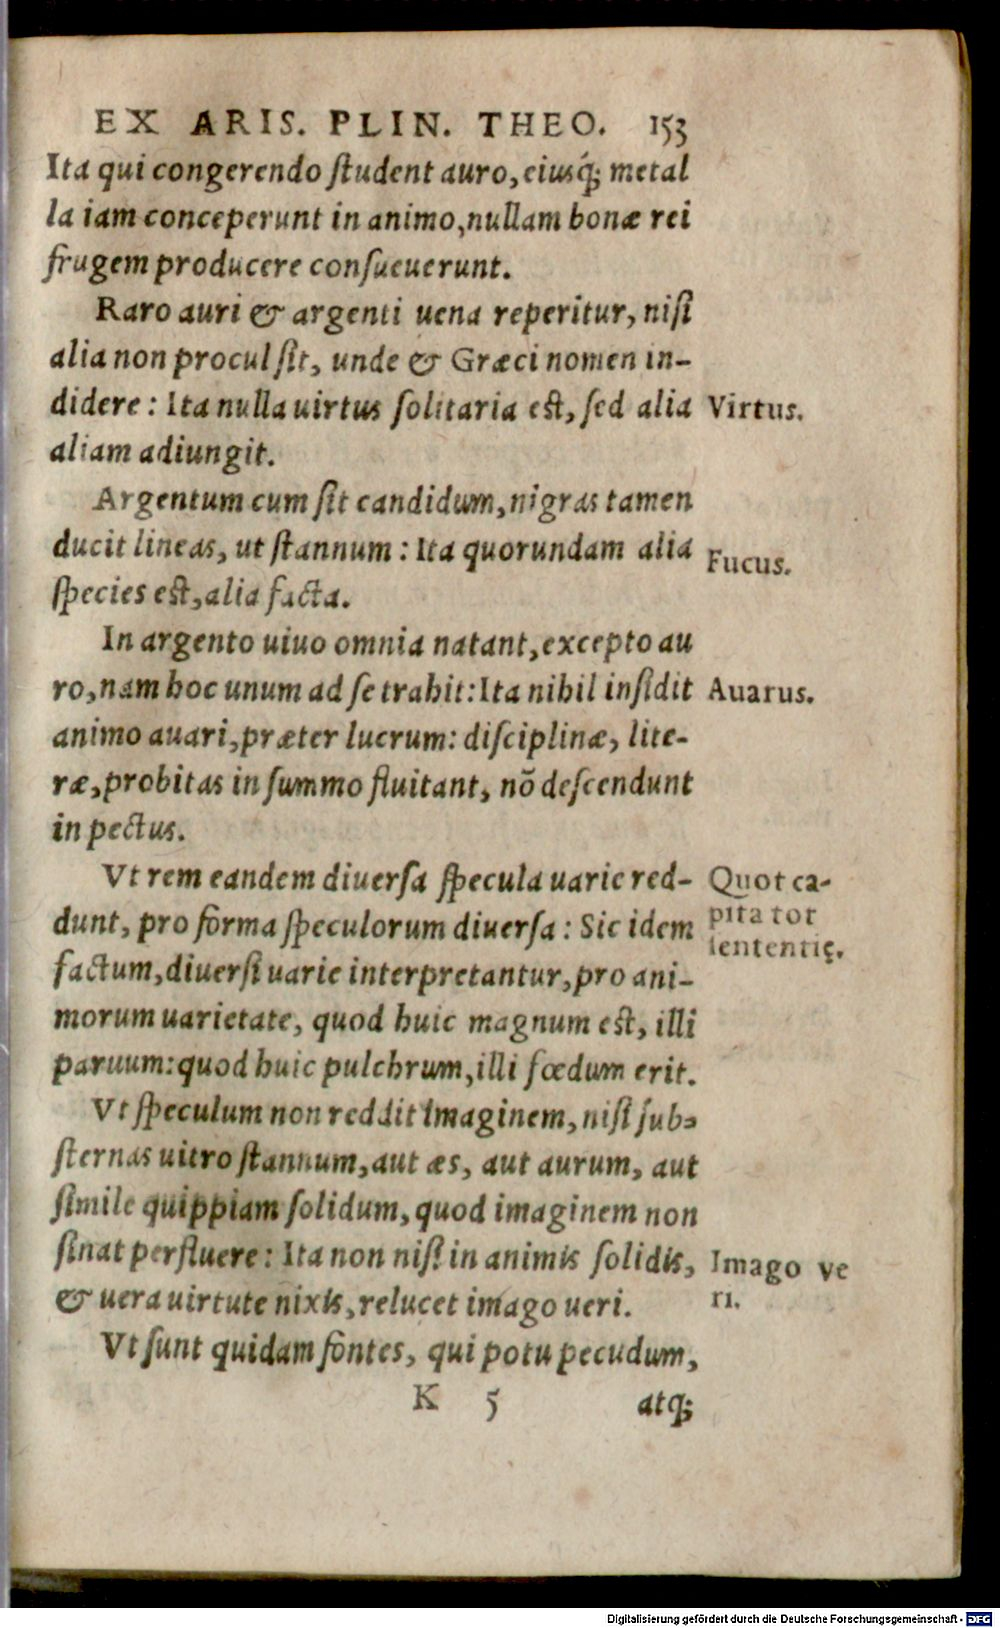 EX ARIS. PLIN. THEO. 153
Ita qui congerendo ſtudent auro, eiusq́; metal
la iam conceperunt in animo, nullam bonæ rei
frugem producere conſueuerunt.
Raro auri & argenti uena reperitur, niſi
alia non procul ſit, unde & Græci nomen in-
didere: Ita nulla uirtus ſolitaria eſt, ſed alia
Virtus.
aliam adiungit.
Argentum cum ſit candidum, nigras tamen
ducit lineas, ut ſtannum: Ita quorundam alia
Fucus.
ſpecies eſt, alia facta.
In argento uiuo omnia natant, excepto au
ro, nam hoc unum ad ſe trahit: Ita nihil inſidit
Auarus.
animo auari, præter lucrum: diſciplinæ, lite-
ræ, probitas in ſummo fluitant, nõ deſcendunt
in pectus.
Vt rem eandem diuerſa ſpecula uarie red-
Quot ca-
dunt, pro forma ſpeculorum diuerſa: Sic idem
pita tot
ſententię.
factum, diuerſi uarie interpretantur, pro ani-
morum uarietate, quod huic magnum eſt, illi
paruum: quod huic pulchrum, illi fœdum erit.
Vt ſpeculum non reddit imaginem, niſi ſub-
ſternas uitro ſtannum, aut æs, aut aurum, aut
ſimile quippiam ſolidum, quod imaginem non
ſinat perfluere: Ita non niſi in animis ſolidis,
Imago ve
& uera uirtute nixis, relucet imago ueri.
ri.
Vt ſunt quidam fontes, qui potu pecudum,
K 5 atq;
Digitalisierung gefördert durch die Deutsche Forschungsgemeinschaft - DFG